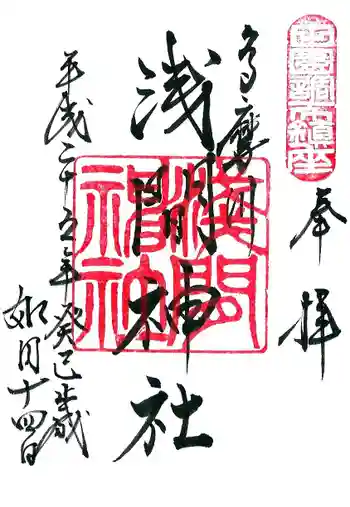 奉拝
多摩川
浅間神社
浅間神社
平成二十五年癸巳歳
如月十四日